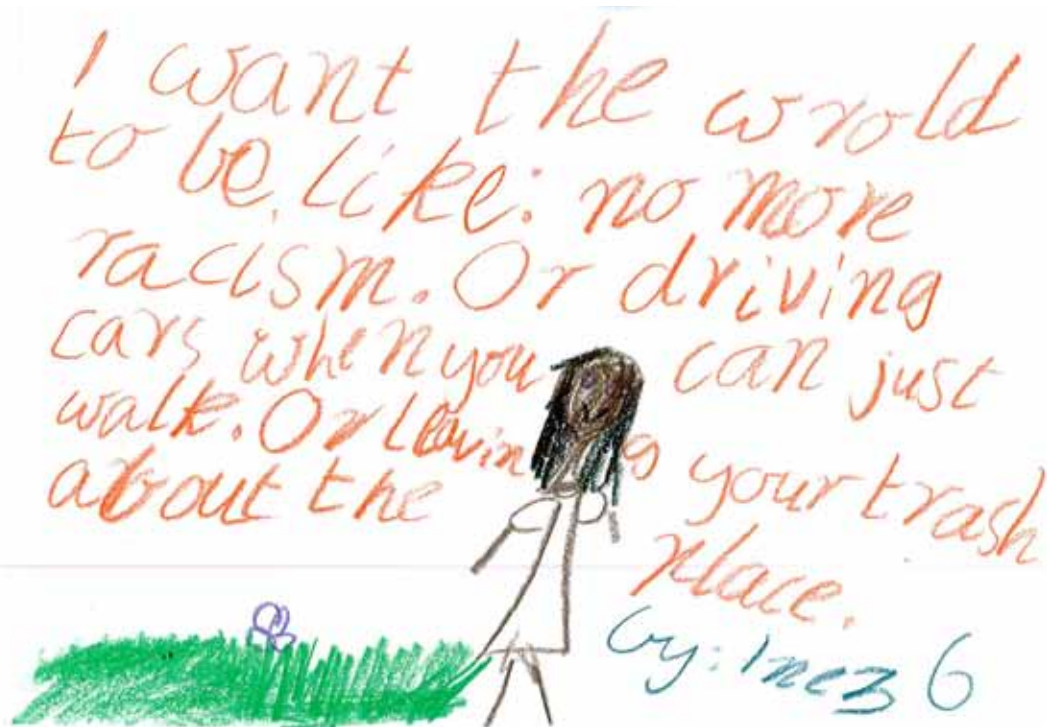 I want the wrold
to be like: no more
racism. Or driving
cars when you can just
walk. Or leaving your trash
about the place.
by: Inez 6